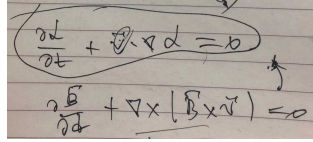 ∂α/∂t + v̄ · ∇α = 0
∂B̄/∂t + ∇ × (B̄ × v̄) = 0